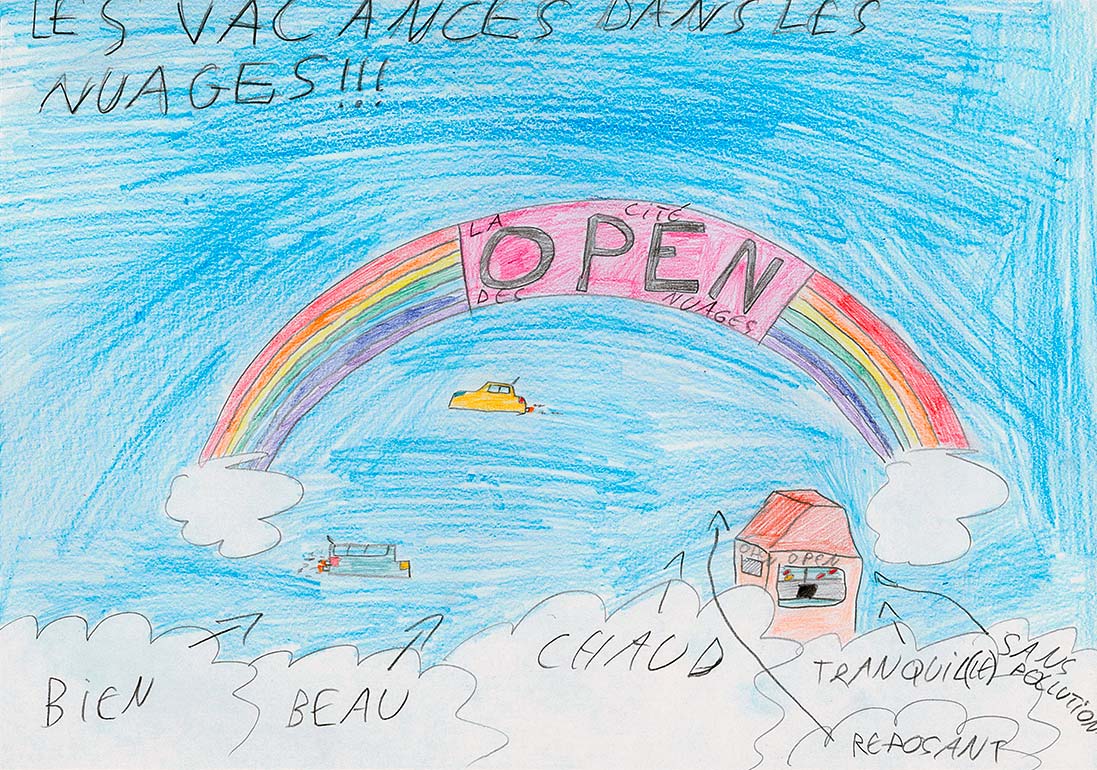 LES VACANCES DANS LES
NUAGES!!!
LA CITÉ
OPEN
DES NUAGES
OPEN
BIEN
BEAU
CHAUD
TRANQUIL(LE)
SANS
POLLUTION
REPOSANT